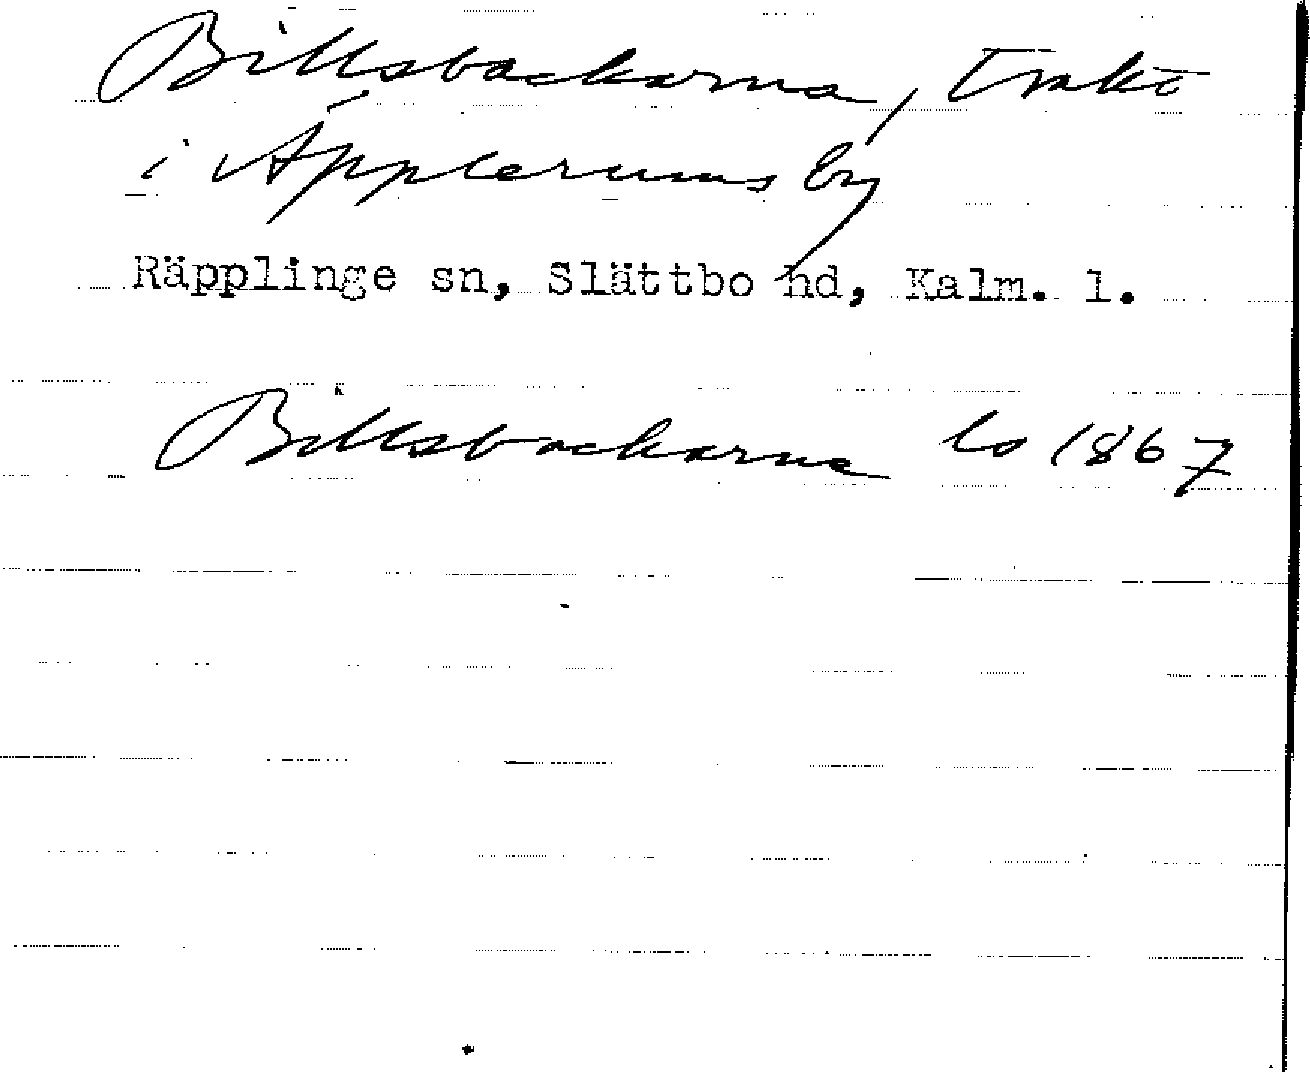 Billsbackarna, trakt
i Äpplerums by
Räpplinge sn, Slättbo hd, Kalm. l.
Billsbackarne ls 1867